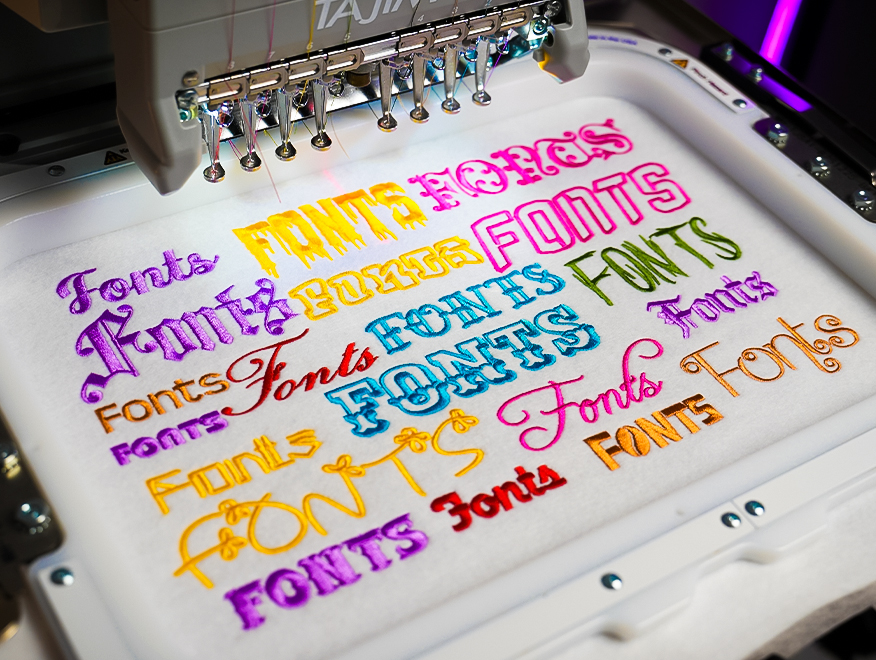 TAJIM
Fonts FONTS FONTS
Fonts FONTS FONTS
Fonts Fonts FONTS FONTS
FONTS FONTS Fonts
Fonts Fonts Fonts
FONTS FONTS
FONTS Fonts